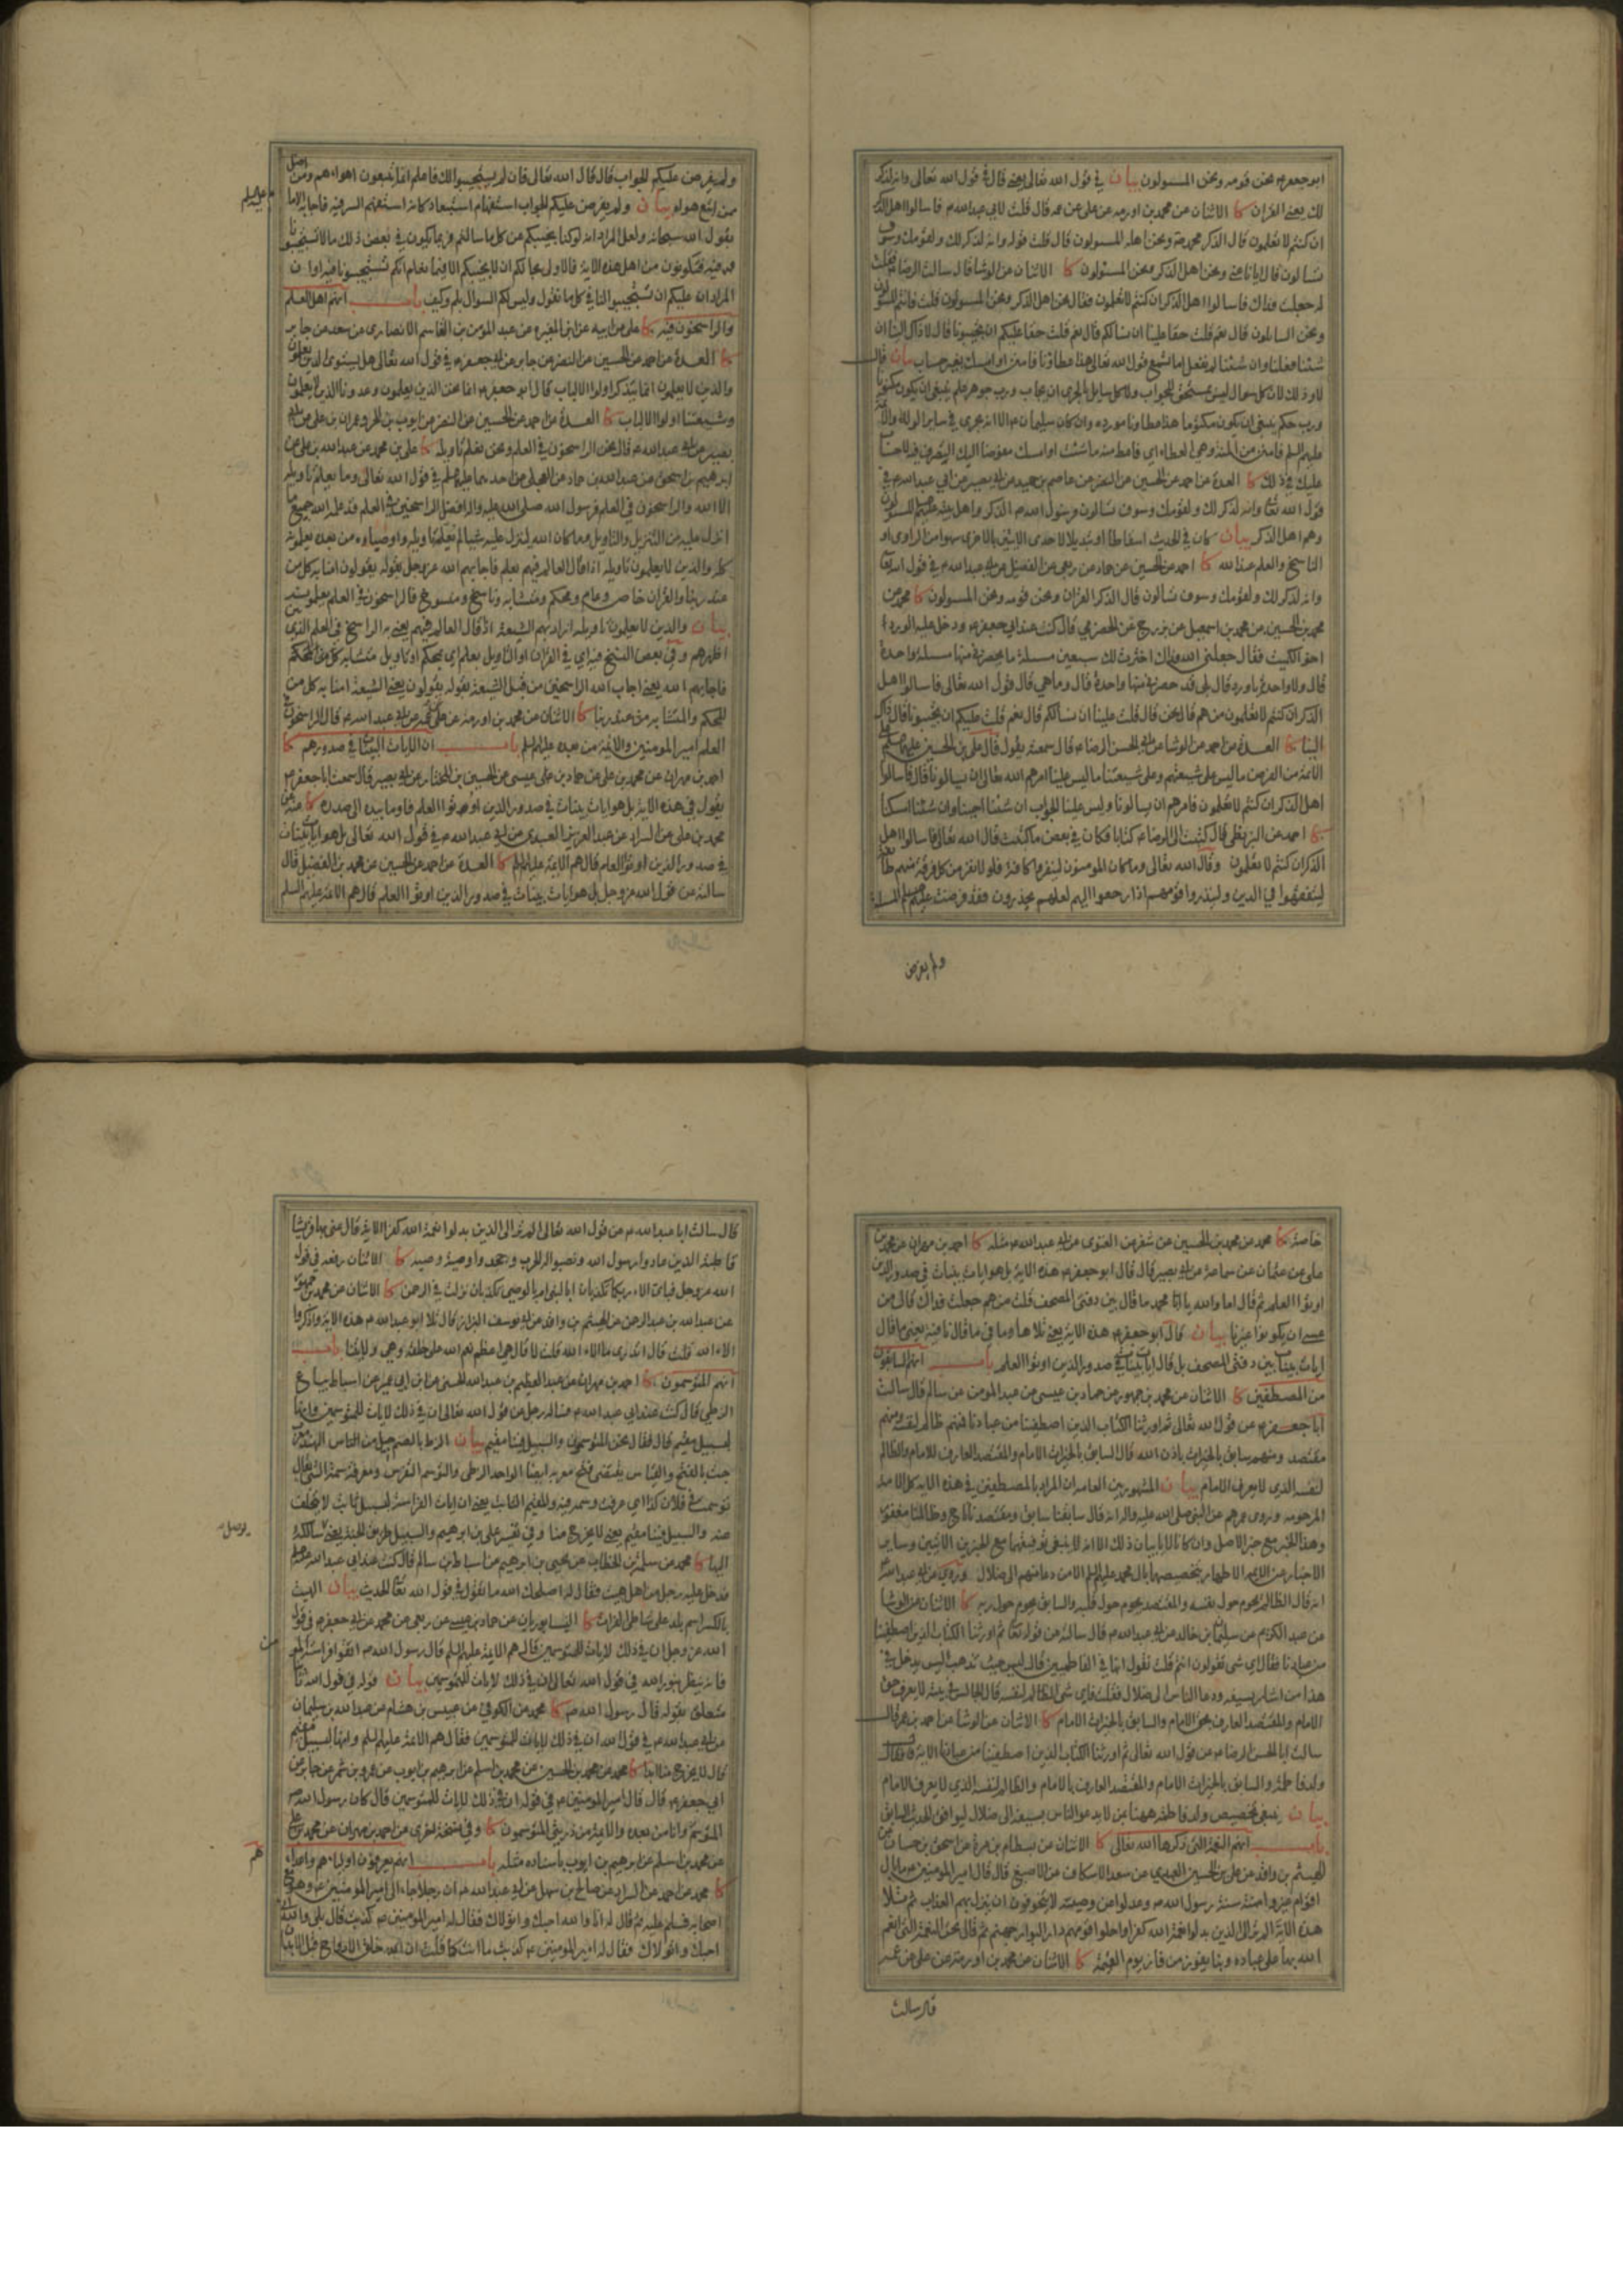 ابو جعفر ع نحن قومه ونحن المسئولون بيان في قول الله تعالى يعني قال في قول الله تعالى وانه لذكر
لك يعني القران كا الاثنان عن محمد بن اورمه عن علي عن عمه قال قلت لابي عبد الله ع فاسالوا اهل الذكر
ان كنتم لا تعلمون قال الذكر محمد ص ونحن اهله المسئولون قال قلت قوله وانه لذكر لك ولقومك وسوف
تسالون قال ايانا عنى ونحن اهل الذكر ونحن المسئولون كا الاثنان عن الوشا قال سالت الرضا ع فقلت
له جعلت فداك فاسالوا اهل الذكر ان كنتم لا تعلمون فقال نحن اهل الذكر ونحن المسئولون قلت فانتم المسئولون
ونحن السائلون قال نعم قلت حقا علينا ان نسالكم قال نعم قلت حقا عليكم ان تجيبونا قال لا ذاك الينا ان
شئنا فعلنا وان شئنا لم نفعل اما تسمع قول الله تعالى هذا عطاؤنا فامنن او امسك بغير حساب بيان قال
لا وذلك لان كل سوال ليس بمستحق للجواب ولا كل سايل بالحري ان يجاب ورب جوهر علم ينبغي ان يكون مكنونا
ورب حكم ينبغي ان يكون مكتوما هذا عطاونا مورده وان كان سليمان ع الا انه يجري في ساير الولاة والائمة
عليهم السلم فامنن من المنة وهي العطاء اي فاعط منه ما شئت او امسك مفوضا اليك التصرف فيه لا حساب
عليك في ذلك كا العدة عن احمد عن الحسين عن النضر عن عاصم بن حميد عن ابي بصير عن ابي عبد الله ع في
قول الله تعا وانه لذكر لك ولقومك وسوف تسالون فرسول الله ص الذكر واهل بيته عليهم السلم المسئولون
وهم اهل الذكر بيان كان في الحديث اسقاطا او تبديلا لاحدى الايتين بالاخرى سهوا من الراوي او
الناسخ والعلم عند الله كا احمد عن الحسين عن حماد عن ربعي عن الفضيل عن ابي عبد الله ع في قول الله تعا
وانه لذكر لك ولقومك وسوف تسالون قال الذكر القران ونحن قومه ونحن المسئولون كا محمد عن
محمد بن الحسين عن محمد بن اسمعيل عن بزرج عن الحضرمي قال كنت عند ابي جعفر ع ودخل عليه الورد
اخو الكميت فقال جعلني الله فداك اخترت لك سبعين مسئلة ما يحضرني منها مسئلة واحدة
قال ولا واحدة يا ورد قال بلى قد حضرني منها واحدة قال وما هي قال قول الله تعالى فاسالوا اهل
الذكر ان كنتم لا تعلمون من هم قال نحن قال قلت علينا ان نسالكم قال نعم قلت عليكم ان تجيبونا قال ذاك
الينا كا العدة عن احمد عن الوشا عن ابي الحسن الرضا ع قال سمعته يقول قال علي بن الحسين عليهما السلم على
الائمة من الفرض ما ليس على شيعتهم وعلى شيعتنا ما ليس علينا امرهم الله تعالى ان يسالونا قال فاسالوا
اهل الذكر ان كنتم لا تعلمون فامرهم ان يسالونا وليس علينا الجواب ان شئنا اجبنا وان شئنا امسكنا
كا احمد عن البزنطي قال كتبت الى الرضا ع كتابا فكان في بعض ما كتبت قال الله تعالى فاسالوا اهل
الذكر ان كنتم لا تعلمون وقال الله تعالى وما كان المؤمنون لينفروا كافة فلولا نفر من كل فرقة منهم طائفة
ليتفقهوا في الدين ولينذروا قومهم اذا رجعوا اليهم لعلهم يحذرون فقد فرضت عليهم المسئلة
ولم يفرض
ولم يفرض عليكم الجواب قال قال الله تعالى فان لم يستجيبوا لك فاعلم انما يتبعون اهواءهم ومن اضل
ممن اتبع هواه بيان ولم يفرض عليكم الجواب استفهام استبعاد كانه استفهم السر فيه فاجابه الامام
عليه السلم
بقول الله سبحانه ولعل المراد انه لو كنا نجيبكم عن كل ما سالتم فربما يكون في بعض ذلك ما لا تستجيبونا
فيه فتكونون من اهل هذه الاية فالاولى بحالكم ان لا نجيبكم الا فيما نعلم انكم تستجيبونا فيه او ان
المراد ان عليكم ان تستجيبوا لنا في كل ما نقول وليس لكم السوال بلم وكيف باب انهم اهل العلم
والراسخون فيه كا علي عن ابيه عن ابن المغيرة عن عبد المومن بن القاسم الانصاري عن سعد عن جابر
كا العدة عن احمد عن الحسين عن النضر عن جابر عن ابي جعفر ع في قول الله تعالى هل يستوي الذين يعلمون
والذين لا يعلمون انما يتذكر اولوا الالباب قال ابو جعفر ع انما نحن الذين يعلمون وعدونا الذين لا يعلمون
وشيعتنا اولوا الالباب كا العدة عن احمد عن الحسين عن النضر عن ايوب بن الحر وعمران بن علي عن ابي
بصير عن ابي عبد الله ع قال نحن الراسخون في العلم ونحن نعلم تاويله كا علي بن محمد عن عبد الله بن علي عن
ابرهيم بن اسحق عن عبد الله بن حماد عن العجلي عن احدهما عليهما السلم في قول الله تعالى وما يعلم تاويله
الا الله والراسخون في العلم فرسول الله صلى الله عليه واله افضل الراسخين في العلم قد علمه الله جميع ما
انزل عليه من التنزيل والتاويل وما كان الله لينزل عليه شيئا لم يعلمه تاويله واوصياوه من بعده يعلمونه
كله والذين لا يعلمون تاويله اذا قال العالم فيهم بعلم فاجابهم الله عز وجل بقوله يقولون امنا به كل من
عند ربنا والقران خاص وعام ومحكم ومتشابه وناسخ ومنسوخ فالراسخون في العلم يعلمونه
بيان والذين لا يعلمون تاويله اراد بهم الشيعة اذا قال العالم فيهم يعني به الراسخ في العلم الذي
اظهرهم وفي بعض النسخ فيه اي في القران او التاويل بعلم اي بمحكم او تاويل متشابه كل من المحكم
فاجابهم الله يعني اجاب الله الراسخين من قبل الشيعة بقوله يقولون يعني الشيعة امنا به كل من
المحكم والمتشابه من عند ربنا كا الاثنان عن محمد بن اورمه عن علي عن عمه عن ابي عبد الله ع قال الراسخون في
العلم امير المومنين والائمة من بعده عليهم السلم باب ان الايات البينات في صدورهم كا
احمد بن مهران عن محمد بن علي عن حماد بن عيسى عن الحسين بن المختار عن ابي بصير قال سمعت ابا جعفر ع
يقول في هذه الاية بل هو ايات بينات في صدور الذين اوتوا العلم فاومأ بيده الى صدره كا عنه عن
محمد بن علي عن السراد عن عبد العزيز العبدي عن ابي عبد الله ع في قول الله تعالى بل هو ايات بينات
في صدور الذين اوتوا العلم قال هم الائمة عليهم السلم كا العدة عن احمد عن الحسين عن محمد بن الفضيل قال
سالته عن قول الله عز وجل بل هو ايات بينات في صدور الذين اوتوا العلم قال هم الائمة عليهم السلم
خاصة كا محمد عن محمد بن الحسين عن شعر عن الغنوي عن ابي عبد الله ع مثله كا احمد بن مهران عن محمد بن
علي عن عثمان عن سماعة عن ابي بصير قال قال ابو جعفر ع هذه الاية بل هو ايات بينات في صدور الذين
اوتوا العلم ثم قال اما والله يا با محمد ما قال بين دفتي المصحف قلت من هم جعلت فداك قال من
عسى ان يكونوا غيرنا بيان قال ابو جعفر ع هذه الاية يعني تلاها وما في ما قال نافية يعني ما قال
ايات بينات بين دفتي المصحف بل قال ايات بينات في صدور الذين اوتوا العلم باب انهم السابقون
من المصطفين كا الاثنان عن محمد بن جمهور عن حماد بن عيسى عن عبد المومن عن سالم قال سالت
ابا جعفر ع عن قول الله تعالى ثم اورثنا الكتاب الذين اصطفينا من عبادنا فمنهم ظالم لنفسه ومنهم
مقتصد ومنهم سابق بالخيرات باذن الله قال السابق بالخيرات الامام والمقتصد العارف للامام والظالم
لنفسه الذي لا يعرف الامام بيان المشهور بين العامة ان المراد بالمصطفين في هذه الاية كل الامة
المرحومة وروى عمرهم عن النبي صلى الله عليه واله انه قال سابقنا سابق ومقتصدنا ناج وظالمنا مغفور
وهذا الخبر مع الاصل وان كان
الاخبار عن الائمة الاطهار بتخصيصها بال محمد عليهم السلم الا من دعا منهم الى ضلال وروي عن ابي عبد الله ع
انه قال الظالم يحوم حول نفسه والمقتصد يحوم حول قلبه والسابق يحوم حول ربه كا الاثنان عن الوشا
عن عبد الكريم عن سليمان بن خالد عن ابي عبد الله ع قال سالته عن قوله تعا ثم اورثنا الكتاب الذين اصطفينا
من عبادنا فقال اي شي تقولون انتم قلت نقول انها في الفاطميين قال ليس حيث تذهب ليس يدخل في
هذا من اشار بسيفه ودعا الناس الى ضلال فقلت فاي شي الظالم لنفسه قال الجالس في بيته لا يعرف حق
الامام والمقتصد العارف بحق الامام والسابق بالخيرات الامام كا الاثنان عن الوشا عن احمد بن عمر قال
سالت ابا الحسن الرضا ع عن قول الله تعالى ثم اورثنا الكتاب الذين اصطفينا من عبادنا الاية فقال
ولد فاطمة والسابق بالخيرات الامام والمقتصد العارف بالامام والظالم لنفسه الذي لا يعرف الامام
بيان ينبغي تخصيص ولد فاطمة ههنا بمن لا يدعو الناس بسيفه الى ضلال ليوافق الحديث السابق
باب انهم النعمة التي ذكرها الله تعالى كا الاثنان عن بسطام بن مرة عن اسحق بن حسان عن
الهيثم بن واقد عن علي بن الحسين العبدي عن سعد الاسكاف عن الاصبغ قال قال امير المومنين ع ما بال
اقوام غيروا سنة رسول الله ص وعدلوا عن وصيته لا يتخوفون ان ينزل بهم العذاب ثم تلا
هذه الاية الم تر الى الذين بدلوا نعمة الله كفرا واحلوا قومهم دار البوار جهنم ثم قال نحن النعمة التي انعم
الله بها على عباده وبنا يفوز من فاز يوم القيمة كا الاثنان عن محمد بن اورمه عن علي عن عمه
قال سالت
قال سالت ابا عبد الله ع عن قول الله تعالى الم تر الى الذين بدلوا نعمة الله كفرا الاية قال عنى بها قريشا
قاطبة الذين عادوا رسول الله ونصبوا له الحرب وجحدوا وصية وصيه كا الاثنان رفعه في قول
الله عز وجل فباي الاء ربكما تكذبان ابالنبي ام بالوصي تكذبان نزلت في الرحمن كا الاثنان عن محمد بن جمهور
عن عبد الله بن عبد الرحمن عن الهيثم بن واقد عن ابي يوسف البزاز قال تلا ابو عبد الله ع هذه الاية واذكروا
الاء الله قلت قال اتدري ما الاء الله قلت لا قال هي اعظم نعم الله على خلقه وهي ولايتنا باب
انهم المتوسمون كا احمد بن مهران عن عبد العظيم بن عبد الله الحسني عن ابن ابي عمير عن اسباط بياع
الزطي قال كنت عند ابي عبد الله ع فساله رجل عن قول الله تعالى ان في ذلك لايات للمتوسمين وانها
لبسبيل مقيم قال فقال نحن المتوسمون والسبيل فينا مقيم بيان الزط بالضم جيل من الناس الهند معرب
جت بالفتح والقياس يقتضي فتح معربه ايضا الواحد الزطي والتوسم التفرس ومعرفة سمة الشي يقال
توسمت في فلان كذا اي عرفت وسمه فيه والمقيم الثابت يعني ان ايات الفراسة لبسبيل ثابت لا يتخلف
عنه والسبيل فينا مقيم يعني لا يخرج منا وفي تفسير علي بن ابرهيم والسبيل طريق الجنة يعني سالكه
يوصل
اليها كا محمد عن سلمة بن الخطاب عن يحيى بن ابرهيم عن اسباط بن سالم قال كنت عند ابي عبد الله ع
فدخل عليه رجل من اهل هيت فقال له اصلحك الله ما تقول في قول الله تعا الحديث بيان الهيت
بالكسر اسم بلد على شاطي الفرات كا النيسابوريان عن حماد بن عيسى عن ربعي عن محمد عن ابي جعفر ع في قول
الله عز وجل ان في ذلك لايات للمتوسمين قال هم الائمة عليهم السلم قال رسول الله ص اتقوا فراسة المومن
فانه ينظر بنور الله في قول الله تعالى ان في ذلك لايات للمتوسمين بيان قوله في قول الله تعا
متعلق بقوله قال رسول الله ص كا محمد عن الكوفي عن عبيس بن هشام عن عبد الله بن سليمان
عن ابي عبد الله ع في قول الله ان في ذلك لايات للمتوسمين فقال هم الائمة عليهم السلم وانها لبسبيل مقيم
قال لا يخرج منا ابدا كا محمد عن محمد بن الحسين عن محمد بن اسلم عن ابرهيم بن ايوب عن عمرو بن شمر عن جابر عن
ابي جعفر ع قال قال امير المومنين ع في قوله ان في ذلك لايات للمتوسمين قال كان رسول الله ص
المتوسم وانا من بعده والائمة من ذريتي المتوسمون كا وفي نسخة اخرى عن احمد بن مهران عن محمد بن علي
عن محمد بن اسلم عن ابرهيم بن ايوب باسناده مثله باب انهم يعرفون اولياءهم واعداءهم
كا محمد عن احمد عن السراد عن صالح بن سهل عن ابي عبد الله ع ان رجلا جاء الى امير المومنين ع وهو مع
اصحابه فسلم عليه ثم قال له انا والله احبك واتولاك فقال له امير المومنين ع كذبت قال بلى والله اني
احبك واتولاك فقال له امير المومنين ع كذبت ما انت كما قلت ان الله خلق الارواح قبل الابدان